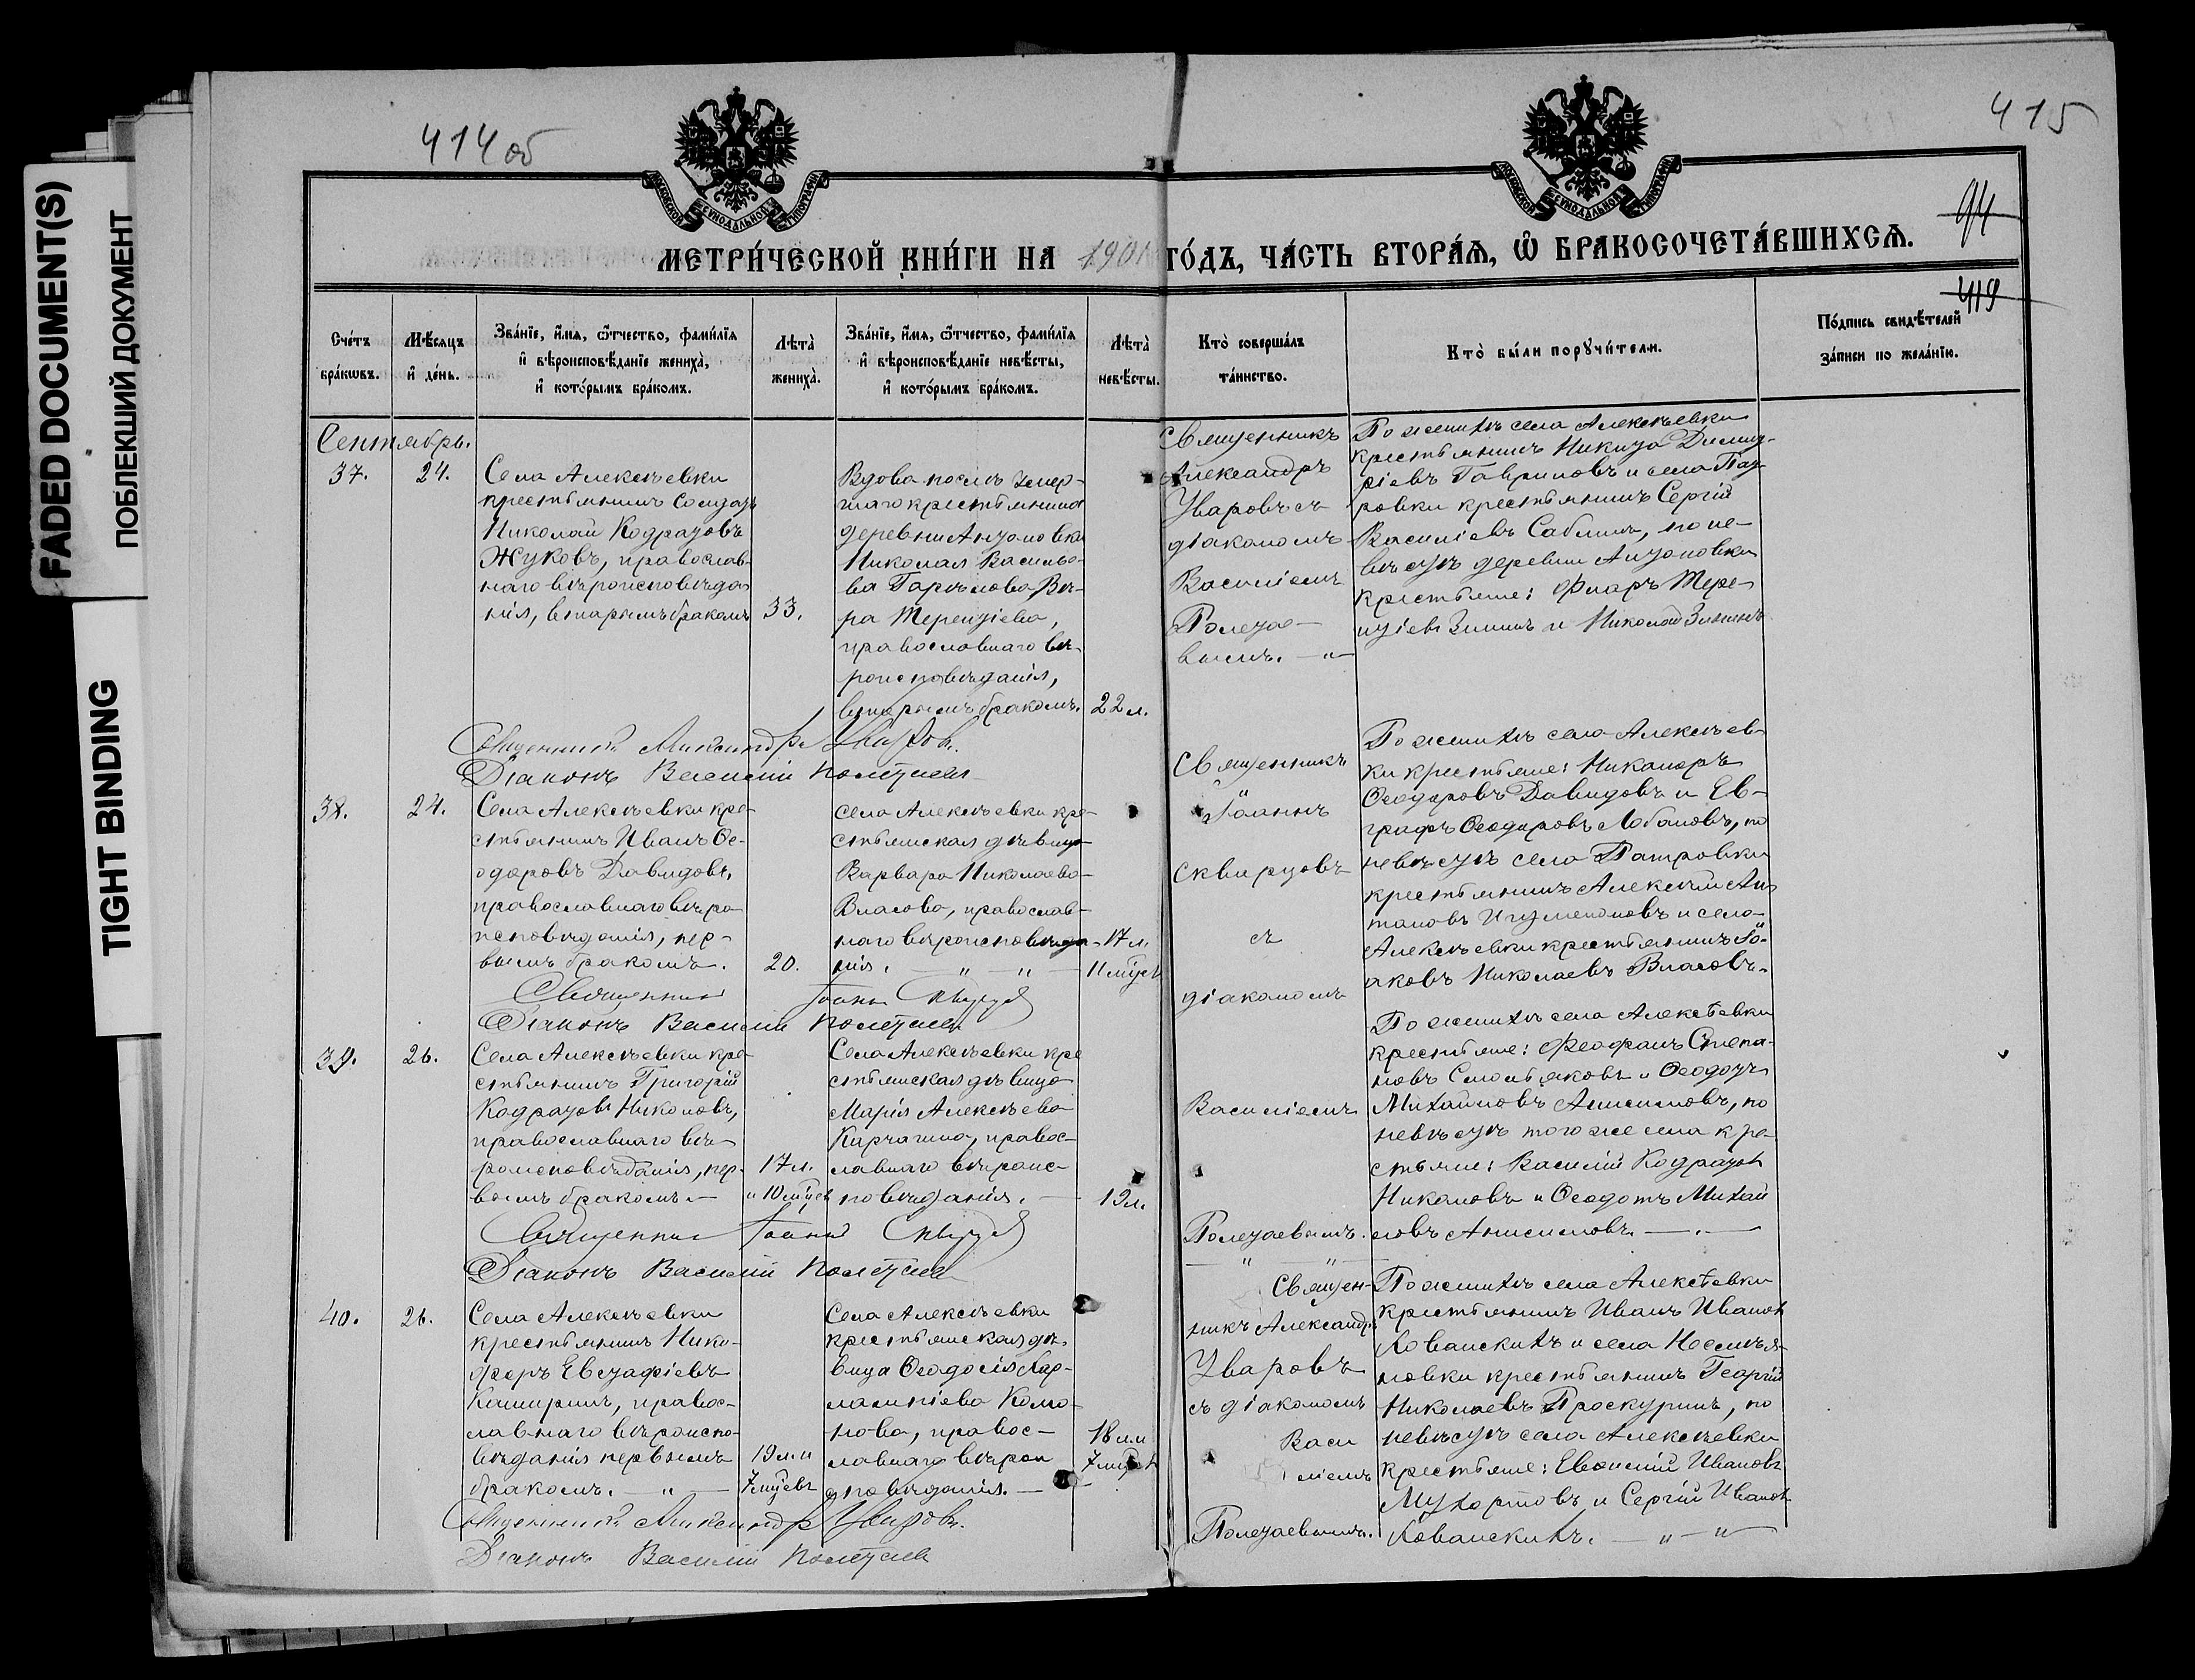 FADED DOCUMENT(S)
ПОБЛЕКШИЙ ДОКУМЕНТ
TIGHT BINDING
414 об
415
94
419
МОСКОВСКОЙ СѴНОДАЛЬНОЙ ТИПОГРАФІИ
МОСКОВСКОЙ СѴНОДАЛЬНОЙ ТИПОГРАФІИ
МЕТРИ́ЧЕСКОЙ КНИ́ГИ НА 1901 ГО́ДЪ, ЧА́СТЬ ВТОРА́Ѧ, Ѽ БРАКОСОЧЕТА́ВШИХСѦ.
Сче́тъ
бра́кѡвъ.
Мѣ́сѧцъ
и҆ де́нь.
Зва́нїе, и҆́мѧ, ѻ҆́тчество, фами́лїѧ
и҆ вѣроисповѣ́данїе жениха̀,
и҆ кото́рымъ бра́комъ.
Лѣта̀
жениха̀.
Зва́нїе, и҆́мѧ, ѻ҆́тчество, фами́лїѧ
и҆ вѣроисповѣ́данїе невѣ́сты,
и҆ кото́рымъ бра́комъ.
Лѣта̀
невѣ́сты.
Кто̀ соверша́лъ
та́инство.
Кто̀ бы́ли порꙋчи́тели.
По́дпись свидѣ́телей
за́писи по жела́нїю.
Сентябрь.
37.
24.
Села Алексѣевки
крестьянинъ солдатъ
Николай Кодратовъ
Жуковъ, православ-
наго вѣроисповѣда-
нія, вторымъ бракомъ
33.
Вдова послѣ умер-
шаго крестьянина
деревни Антоновки
Николая Василье-
ва Вѣ-
ра Терентіева,
православнаго вѣ-
роисповѣданія,
вторымъ бракомъ.
22 л.
Священникъ
Александръ
Уваровъ съ
діакономъ
Василіемъ
Полетае-
вымъ. — „ —
По женихѣ села Алексѣевки
крестьянинъ Никита Димит-
ріевъ Гавриловъ и села Пат-
ровки крестьянинъ Сергій
Василіевъ Саблинъ, по не-
вѣстѣ деревни Антоновки
крестьяне: Тере-
нтіевъ Зининъ и Николай Зининъ
Священникъ Александръ Уваровъ.
Діаконъ Василій Полетаевъ
38.
24.
Села Алексѣевки кре-
стьянинъ Иванъ Ѳе-
одоровъ Давидовъ,
православнаго вѣро-
исповѣданія, пер-
вымъ бракомъ.
20.
Села Алексѣевки кре-
стьянская дѣвица
Варвара Николаева
Власова, православ-
наго вѣроисповѣда-
нія. — „ — „ —
17 л.
11 мѣцевъ
Священникъ
Іоаннъ
Скварцовъ
съ
діакономъ
По женихѣ села Алексѣев-
ки крестьяне: Никаноръ
Ѳеодоровъ Давидовъ и Ев-
графъ Ѳеодоровъ Лобановъ, по
невѣстѣ села Патровки
крестьянинъ Алексѣй Ан-
тоновъ Игуменовъ и села
Алексѣевки крестьянинъ Іо-
аковъ Николаевъ Власовъ.
Священникъ Іоаннъ Скварцовъ
Діаконъ Василій Полетаевъ
39.
26.
Села Алексѣевки кре-
стьянинъ Григорій
Кодратовъ Никоновъ,
православнаго вѣ-
роисповѣданія, пер-
вымъ бракомъ. —
17 л.
и 10 мѣцевъ
Села Алексѣевки кре-
стьянская дѣвица
Марія Алексѣева
Карчагина, правос-
лавнаго вѣроис-
повѣданія. —
19 л.
Василіемъ
Полетаевымъ.
— „ — „ —
По женихѣ села Алексѣевки
крестьяне: Феофанъ Степа-
новъ Смольяковъ и Ѳеодотъ
Михайловъ Анисимовъ, по
невѣстѣ того же села кре-
стьяне: Василій Кодратовъ
Никоновъ и Ѳеодотъ Михай-
ловъ Анисимовъ. — . —
Священникъ Іоаннъ Скварцовъ
Діаконъ Василій Полетаевъ
40.
26.
Села Алексѣевки
крестьянинъ Ники-
форъ Евстафіевъ
Каширинъ, правос-
лавнаго вѣроиспо-
вѣданія первымъ
бракомъ. — „ —
19 л. и
7 мѣцевъ
Села Алексѣевки
крестьянская дѣ-
вица Ѳеодосія Хар-
лампіева Комо-
нова, правос-
лавнаго вѣрои-
сповѣданія. —
18 л. и
7 мѣцевъ
Священ-
никъ Александръ
Уваровъ
съ діакономъ
Васи
ліемъ
Полетаевымъ.
По женихѣ села Алексѣевки
крестьянинъ Иванъ Ивановъ
Хованскихъ и села Несмѣя-
новки крестьянинъ Георгій
Николаевъ Проскуринъ, по
невѣстѣ села Алексѣевки
крестьяне: Ивановъ
Мухортовъ и Сергій Ивановъ
Хованскихъ. — „ — „
Священникъ Александръ Уваровъ.
Діаконъ Василій Полетаевъ